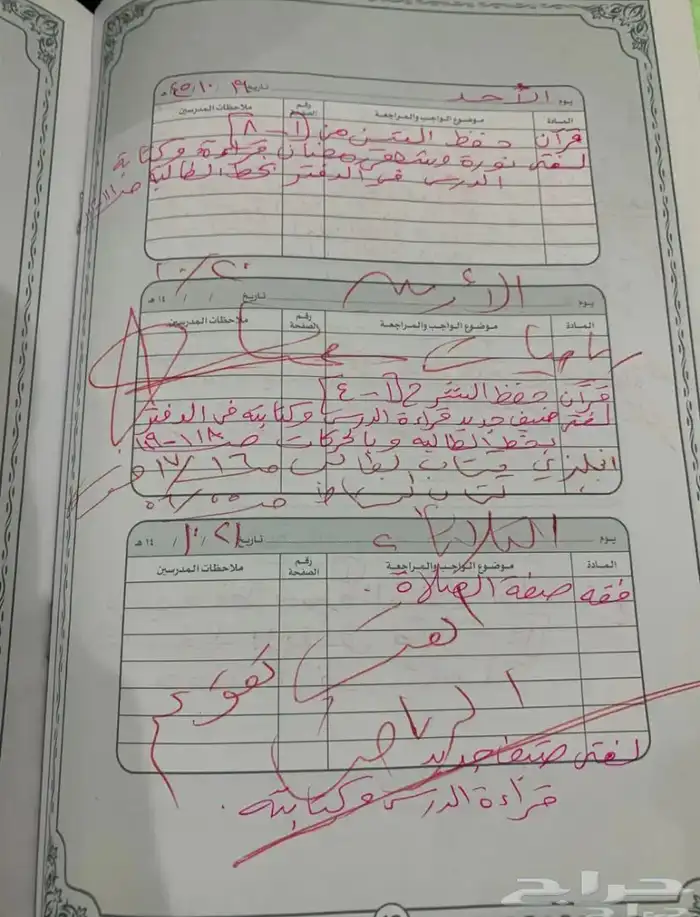 يوم الأحد تاريخ ١٩ / ١٠ / ٤٥ هـ
المادة موضوع الواجب والمراجعة رقم الصفحة ملاحظات المدرسين
قرآن حفظ التين من (١-٨)
لغتي نورة وشهر رمضان قراءة وكتابة
الدرس في الدفتر بخط الطالبة
١٠/٢٠
يوم تاريخ / / ١٤ هـ
المادة موضوع الواجب والمراجعة رقم الصفحة ملاحظات المدرسين
قرآن حفظ الشرح (١-٤)
لغتي ضيف جديد قراءة الدرس وكتابته في الدفتر
بخط الطالبة وبالحركات صـ ١١٨-١١٩
انجليزي كتاب الطالب صـ ١٦/١٧
كتاب النشاط صـ
يوم الثلاثاء تاريخ ٢١ / ١٠ / ١٤ هـ
المادة موضوع الواجب والمراجعة رقم الصفحة ملاحظات المدرسين
فقه صفة الصلاة.
تقويم
الرياضيات
لغتي ضيف جديد
قراءة الدرس وكتابته.
حراج